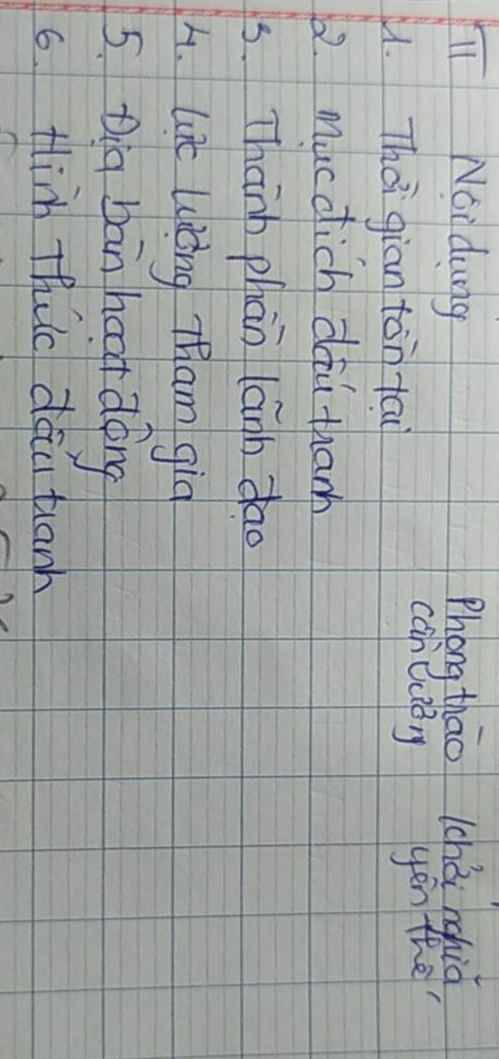 II Nội dung Phong trào Khởi nghĩa
Cần Vương yên thế
1. Thời gian tồn tại
2. Mục đích đấu tranh
3. Thành phần lãnh đạo
4. Lực lượng tham gia
5. Địa bàn hoạt động
6. Hình thức đấu tranh